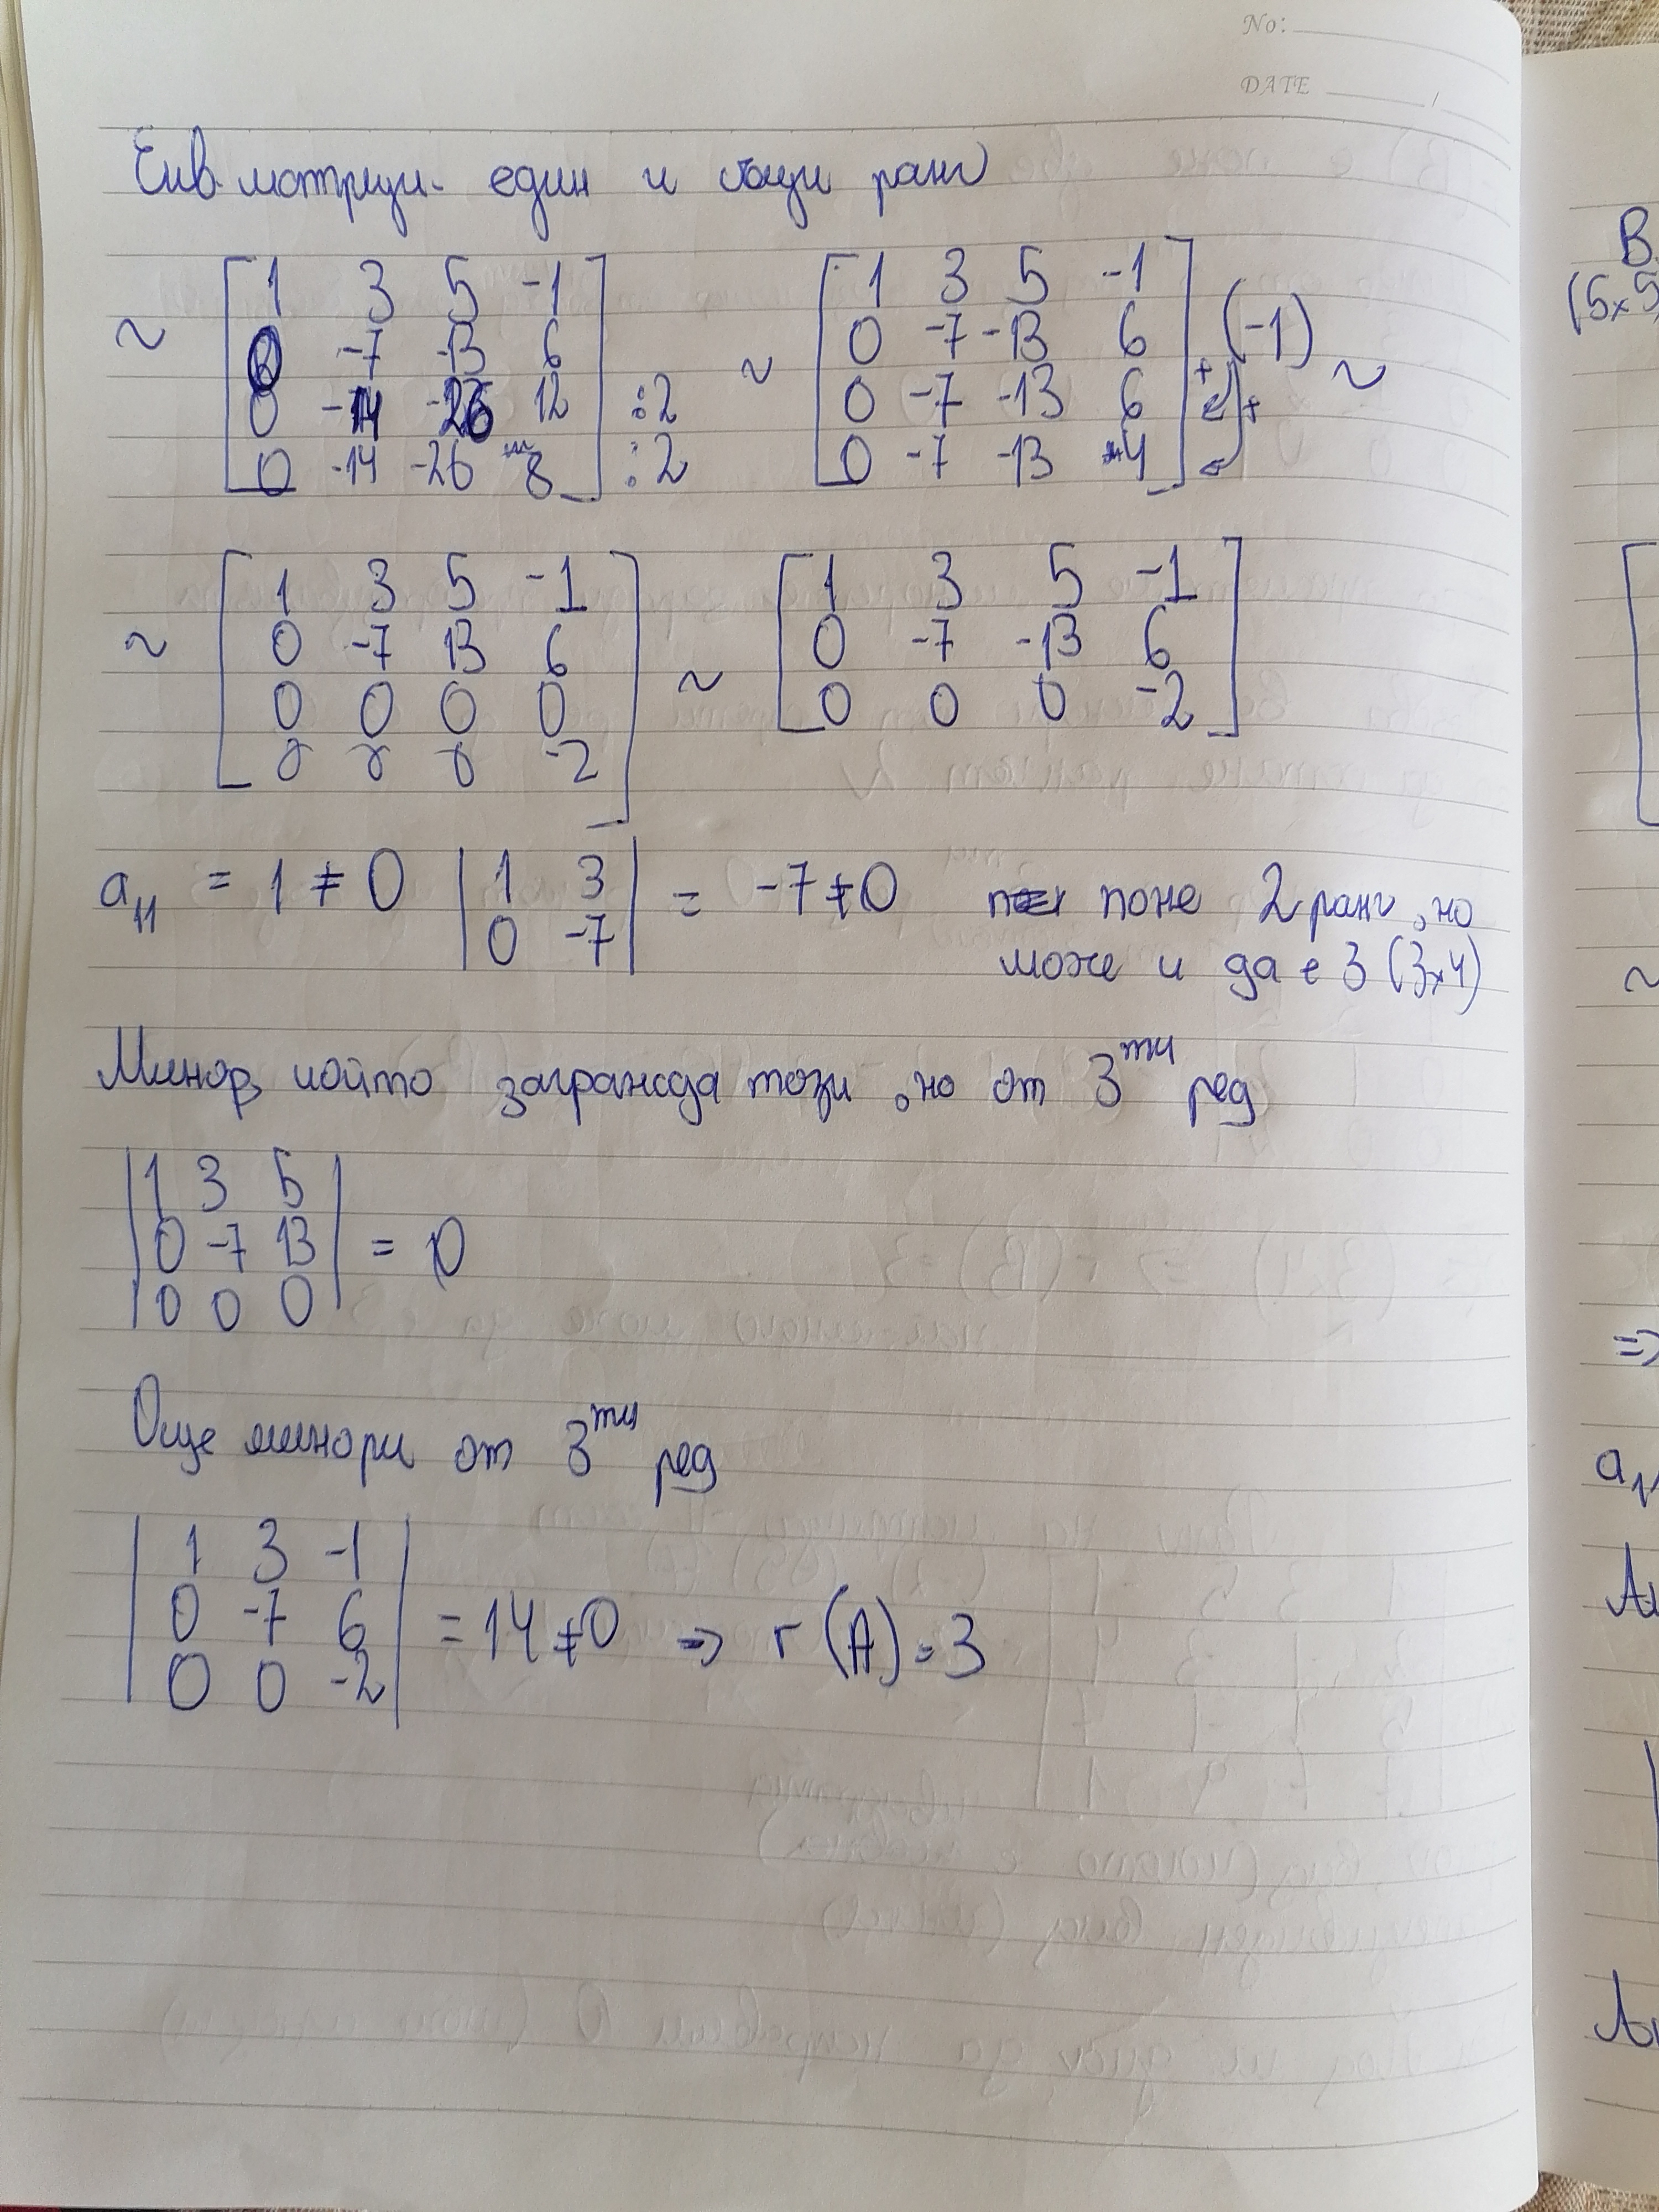 No:
DATE
Екв. матрици - един и същи ранг
~ [1 3 5 -1; 0 -7 -13 6; 0 -14 -26 12; 0 -14 -26 8] :2 :2 ~ [1 3 5 -1; 0 -7 -13 6; 0 -7 -13 6; 0 -7 -13 4] (-1) + + ~
~ [1 3 5 -1; 0 -7 13 6; 0 0 0 0; 0 0 0 -2] ~ [1 3 5 -1; 0 -7 -13 6; 0 0 0 -2]
a₁₁ = 1 ≠ 0 |1 3; 0 -7| = -7 ≠ 0 поне 2 ранг, но
може и да е 3 (3x4)
Минор, който загражда този, но от 3ᵀᴹ ред
|1 3 5; 0 -7 13; 0 0 0| = 0
Още минори от 3ᵀᴹ ред
|1 3 -1; 0 -7 6; 0 0 -2| = 14 ≠ 0 => r(A) = 3
В
(5x5
~
=>